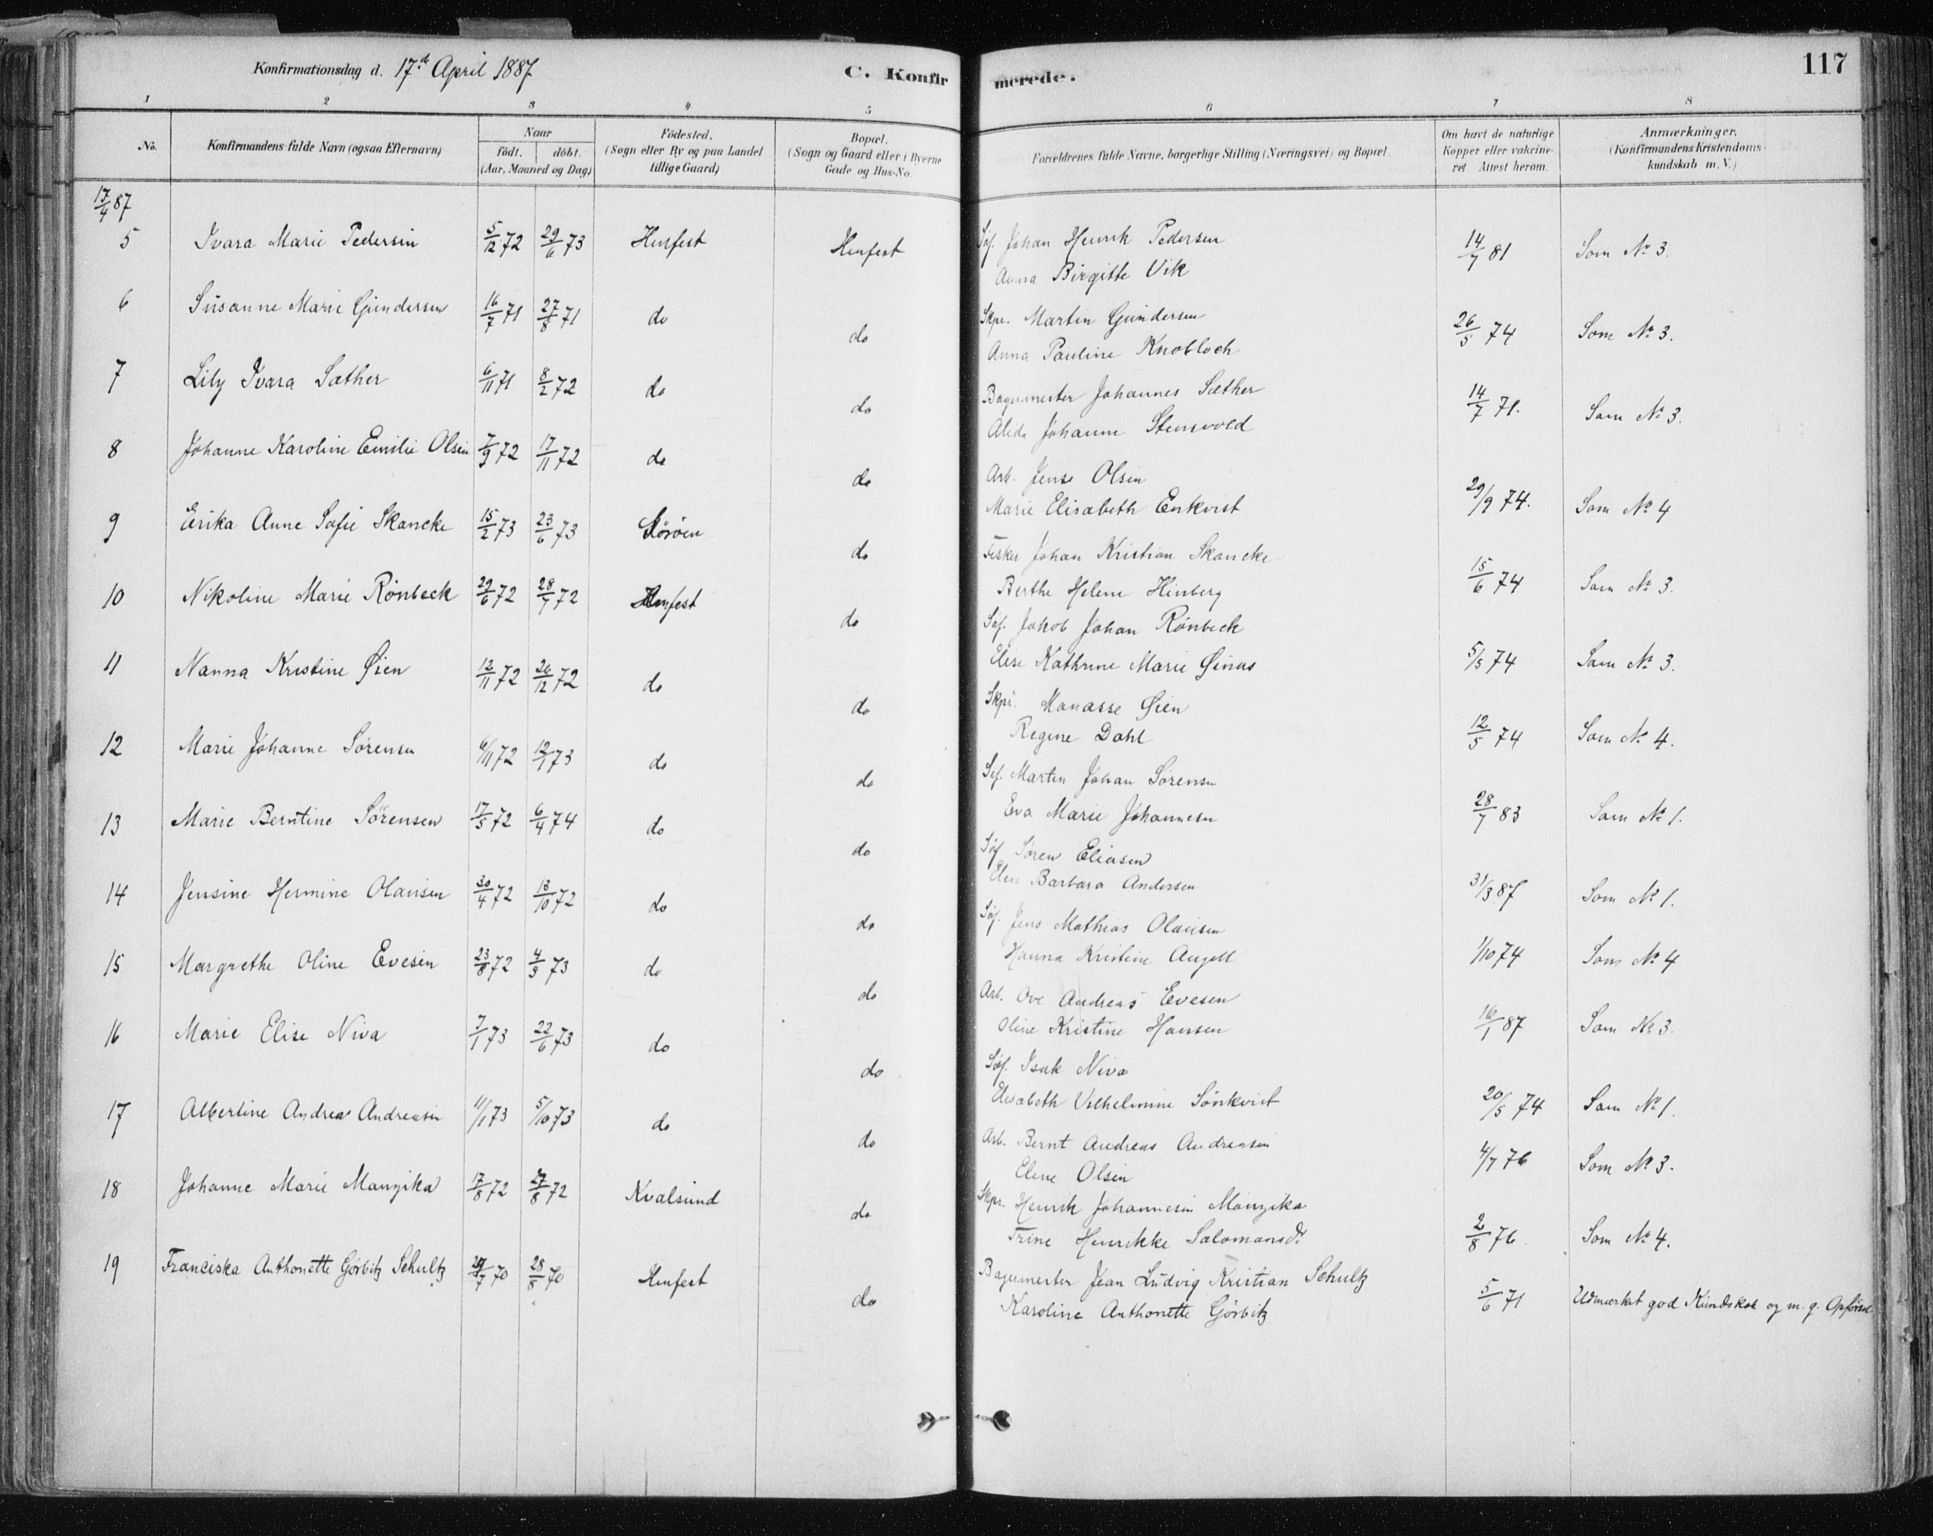 Konfirmationsdag d. 17de April 1887
C. Konfirmerede.
117
1 2 3 4 5 6 7 8
No.
Konfirmandens fulde Navn (ogsaa Efternavn)
Naar
födt. döbt.
(Aar, Maaned og Dag)
Födested.
(Sogn eller By og paa Landet
tillige Gaard)
Bopæl.
(Sogn og Gaard eller i Byerne
Gade og Hus-No.
Forældrenes fulde Navne, borgerlige Stilling (Næringsvei) og Bopæl.
Om havt de naturlige
Kopper eller vakcine-
ret. Attest herom.
Anmærkninger.
(Konfirmandens Kristendoms-
kundskab m. V.)
17/4 87
5 Ivara Marie Pedersen 5/12 72 29/6 73 Hmfest Hmfest Søf. Johan Henrik Pedersen 14/7 81 Som No 3.
Anna Birgitte Vik
6 Susanne Marie Gundersen 16/7 71 27/8 71 do do Skpr. Martin Gundersen 26/5 74 Som No 3.
Anna Pauline Knobloch
7 Lily Ivara Sæther 6/11 71 8/2 72 do do Bagermester Johannes Sæther 14/7 71. Som No 3.
Alida Johanne Stensvold
8 Johanne Karoline Emilie Olsen 7/9 72 17/11 72 do do Arb. Jens Olsen 29/9 74. Som No 4
Marie Elisabeth Enkvist
9 Erika Anne Sofie Skancke 15/2 73 23/6 73 Sørøen do Fisker Johan Kristian Skancke 15/6 74 Som No 3.
Berthe Helene Hinberg
10 Nikoline Marie Rönbeck 29/6 72 28/7 72 Hmfest do Søf. Jakob Johan Rönbeck 5/5 74 Som No 3.
Elise Kathrine Marie
11 Nanna Kristine Øien 12/11 72 26/12 72 do do Skpr. Manasse Øien 12/5 74 Som No 4.
Regine Dahl
12 Marie Johanne Sørensen 6/11 72 12/1 73 do do Søf. Martin Johan Sørensen 28/7 83 Som No 1.
Eva Marie Johannesen
13 Marie Berntine Sørensen 17/5 72 6/4 74 do do Søf. Søren Eliasen 31/3 87 Som No 1.
Elen Barbara Andersen
14 Jensine Hermine Olausen 30/4 72 13/10 72 do do Søf. Jens Mathias Olausen 1/10 74 Som No 4
Hanna Kristine Angell
15 Margrethe Oline Evesen 23/8 72 4/9 73 do do Arb. Ove Andreas Evesen 16/1 87 Som No 3.
Oline Kristine Hansen
16 Marie Elise Niva 7/1 73 22/6 73 do do Søf. Isak Niva 20/5 74 Som No 1.
Elisabeth Vilhelmine Sönkvist
17 Albertine Andrea Andreasen 11/1 73 5/10 73 do do Arb. Bernt Andreas Andreasen 4/7 76 Som No 3.
Elene Olsen
18 Johanne Marie Manzika 17/8 72 27/8 72 Kvalsund do Skpr. Henrik Johannesen Manzika 2/8 76. Som No 4.
Trine Henrikke Salomonsdr
19 Franciska Anthonette Görbitz Schultz 29/7 70 28/8 70 Hmfest do Bagermester Jean Ludvig Kristian Schultz 5/6 71 Udmærket god Kundskab og m. g. Opförsel.
Karoline Anthonette Görbitz